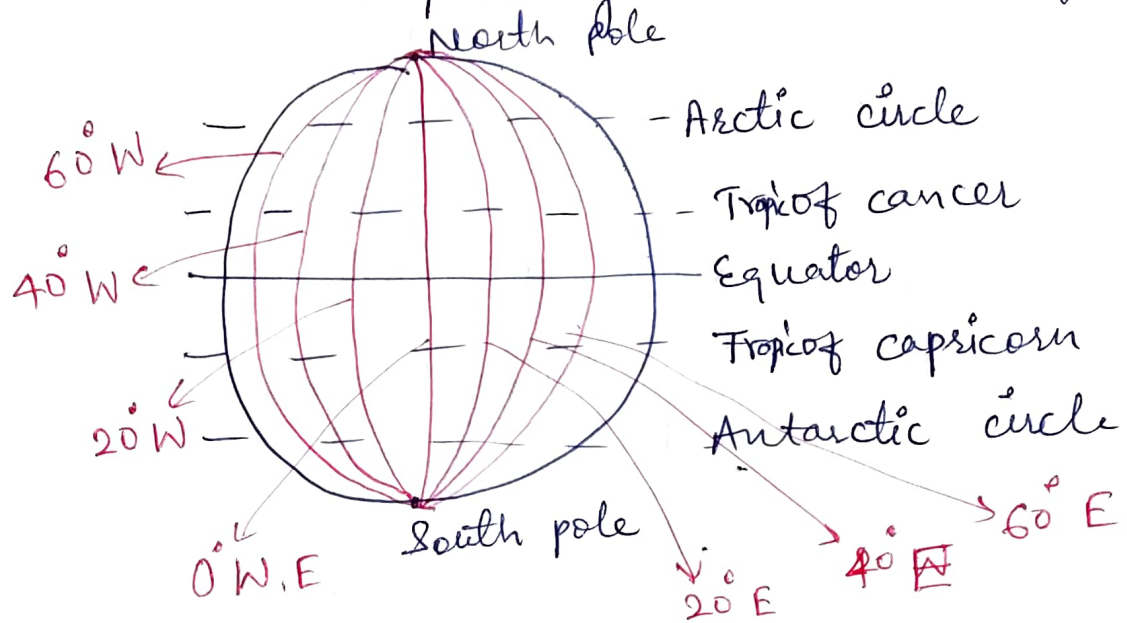 North pole
Arctic circle
60° W
Tropic of cancer
Equator
40° W
Tropic of capricorn
20° W
Antarctic circle
60° E
South pole
40°
0° W.E
20° E